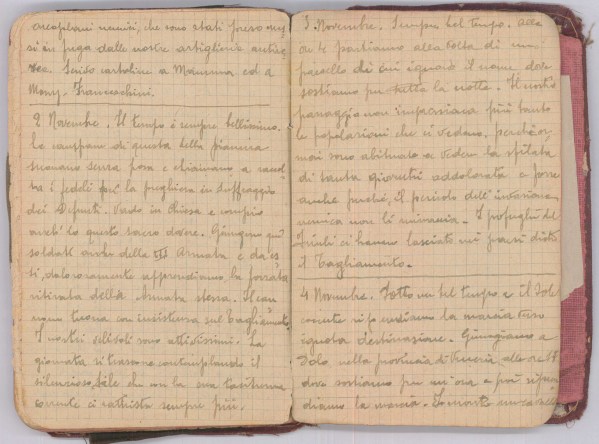 aeroplani nemici, che sono stati presto mes
si in fuga dalle nostre artiglierie antiae
ree. Scrivo cartoline a Mamma ed a
Mony. Franceschini.
2 Novembre. Il tempo è sempre bellissimo.
Le campane di questa bella pianura
suonano senza posa e chiamano a racol
ta i fedeli per la preghiera in suffraggio
dei Defunti. Vado in Chiesa e compio
anch'io questo sacro dovere. Giungono qui
soldati anche della III Armata e da es
si, dolorosamente apprendiamo, la forzata
ritirata della Armata stessa. Il can
none tuona con insistenza sul Tagliamento.
I nostri velivoli sono attivissimi. La
giornata si trascorre contemplando il
silenzioso Sile che con la sua taciturna
corrente ci rattrista sempre più.
3 Novembre. Sempre bel tempo. Alle
ore 4 partiamo alla volta di un
paesello di cui ignoro il nome dove
sostiamo per tutta la notte. Il nostro
passaggio non impressiona più tanto
le popolazioni che ci vedono, perchè or
mai sono abituate a vedere la sfilata
di tanta gioventù addolorata e forse
anche perchè, il pericolo dell'invasione
nemica non li minaccia. I profughi del
Friuli ci hanno lasciato nei paesi dietro
il Tagliamento.
4 Novembre. Sotto un bel tempo e il Sole
cocente riprendiamo la marcia verso
ignota destinazione. Giungiamo a
Dolo nella provincia di Venezia alle ore 17
dove sostiamo per un'ora e poi ripren
diamo la marcia. Io monto in